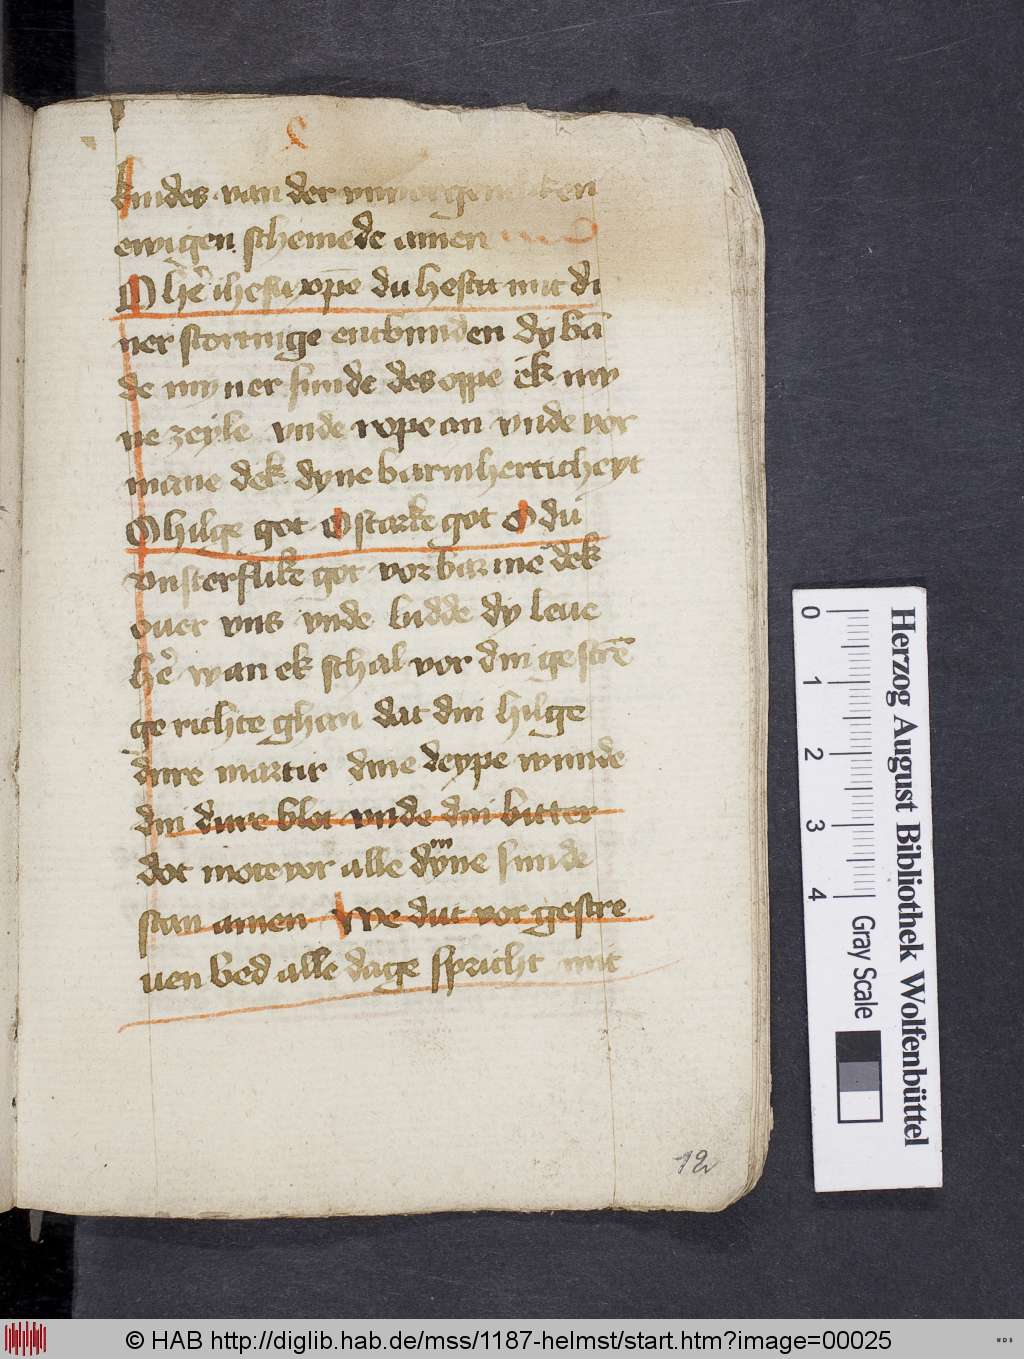 kindes van der
ewigen schemede amen
O hē ihesu xp̄e du hestu mit di
ner storringe entbunden dy bā
de myner sunde des oppe ek my
ne zeyle vnde rope an vnde vor
mane dek dyne barmherticheyt
O hilge got O starke got O du
vnsterflike got vorbarme dek
ouer vns vnde bidde dy leue
hē wan ek schal vor din gestrē
ge richte ghan dat din hilge
dure martir dine deype wunde
din dure blot vnde din bitter
dot mote vor alle dyne sunde
m
stan amen We dut vor gescre
uen bed alle dage spricht mit
12
0 1 2 3 4
Gray Scale
Herzog August Bibliothek Wolfenbüttel
© HAB http://diglib.hab.de/mss/1187-helmst/start.htm?image=00025